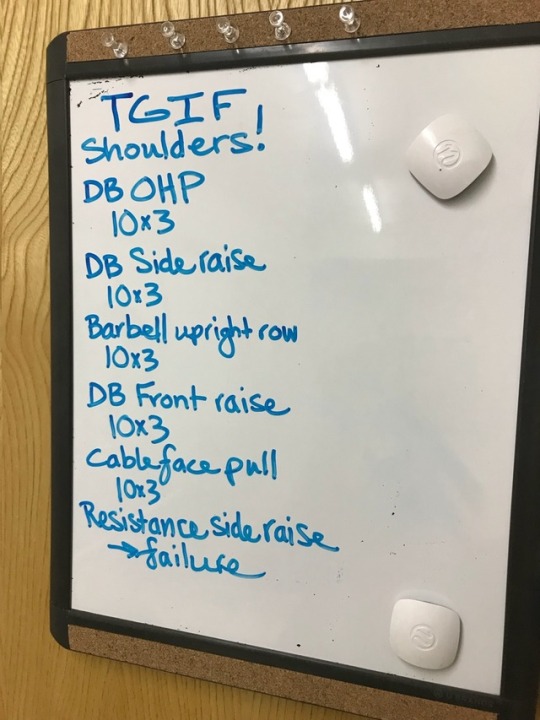 TGIF
Shoulders!
DB OHP
10x3
DB Side raise
10x3
Barbell upright row
10x3
DB Front raise
10x3
Cable face pull
10x3
Resistance side raise
→ failure